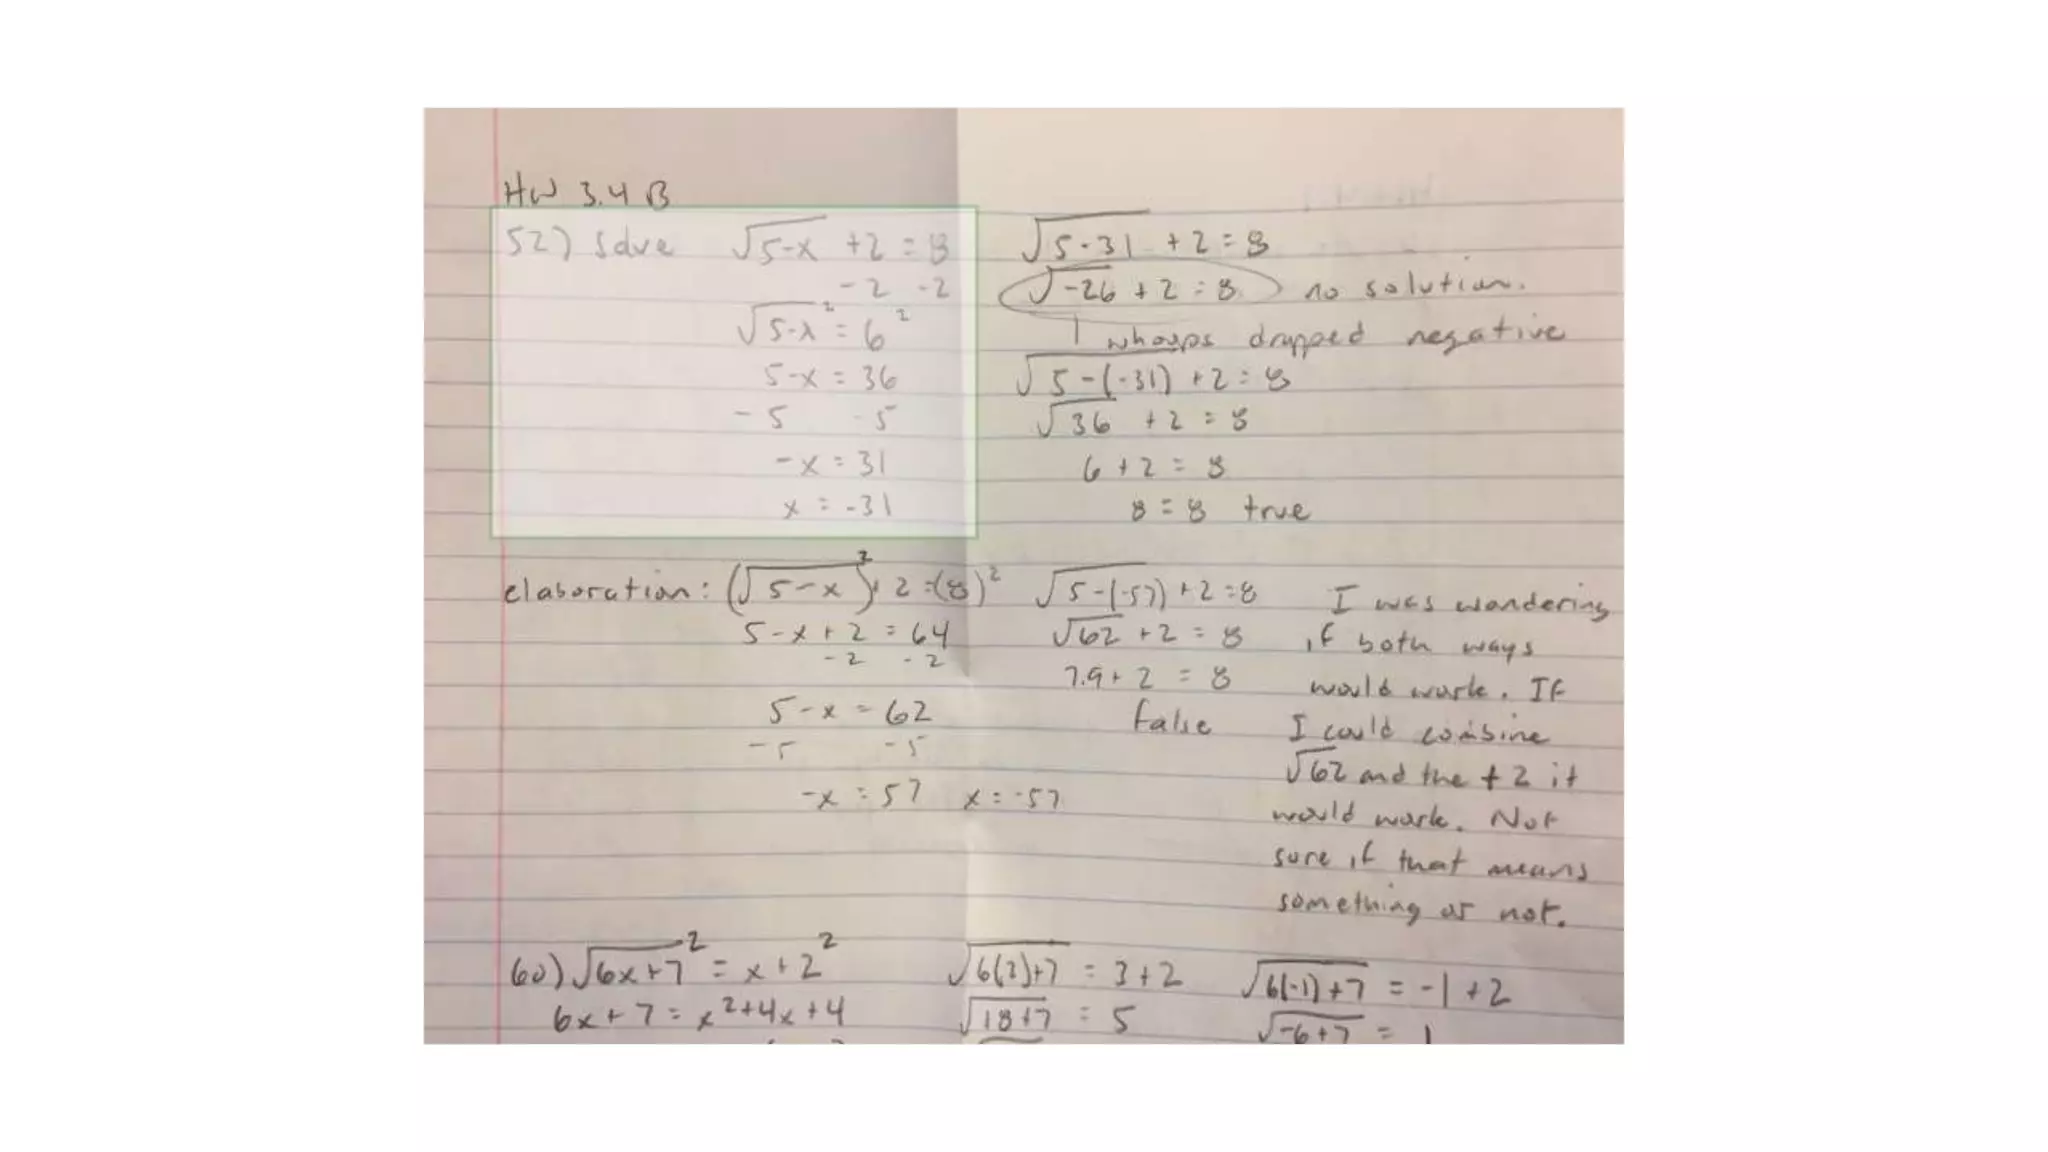 HW 3.4 B
52) Solve √5-x +2 = 8
-2 -2
√5-x² = 6²
5-x = 36
-5 -5
-x = 31
x = -31
√5-31 +2 = 8
√-26 +2 = 8 no solution.
whoops dropped negative
√5-(-31) +2 = 8
√36 +2 = 8
6+2 = 8
8 = 8 true
elaboration: (√5-x)²+2=(8)²
5-x+2 = 64
-2 -2
5-x = 62
-5 -5
-x = 57 x = -57
√5-(-57) +2=8
√62 +2 = 8
7.9+2 = 8
false
I was wondering
if both ways
would work. If
I could combine
√62 and the +2 it
would work. Not
sure if that means
something or not.
60) √6x+7² = x+2²
6x+7 = x²+4x+4
√6(3)+7 = 3+2
√18+7 = 5
√6(-1)+7 = -1+2
√-6+7 = 1